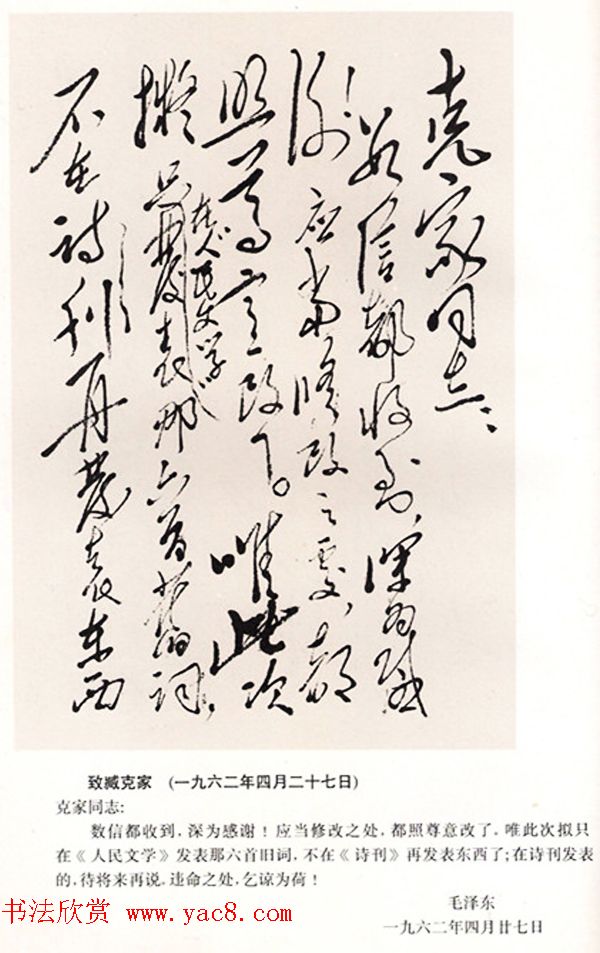 克家同志：
数信都收到，深为感
谢！应当修改之处，都
照尊意改了。唯此次
拟只在《人民文学》发表那六首旧词，
不在诗刊再发表东西
致臧克家 （一九六二年四月二十七日）
克家同志:
数信都收到，深为感谢！应当修改之处，都照尊意改了，唯此次拟只
在《人民文学》发表那六首旧词，不在《诗刊》再发表东西了；在诗刊发表
的，待将来再说，违命之处，乞谅为荷！
毛泽东
一九六二年四月廿七日
书法欣赏 www.yac8.com